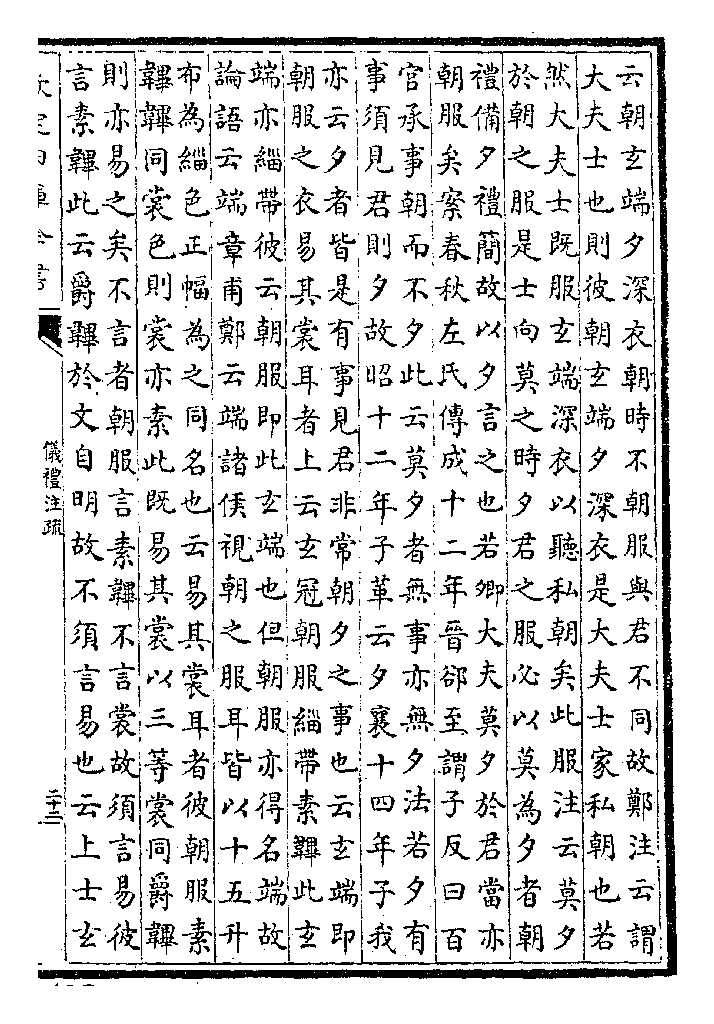 云朝玄端夕深衣朝時不朝服與君不同故鄭注云謂
大夫士也則彼朝玄端夕深衣是大夫士家私朝也若
然大夫士既服玄端深衣以聽私朝矣此服注云莫夕
於朝之服是士向莫之時夕君之服必以莫為夕者朝
禮備夕禮簡故以夕言之也若卿大夫莫夕於君當亦
朝服矣案春秋左氏傳成十二年晉郤至謂子反曰百
官承事朝而不夕此云莫夕者無事亦無夕法若夕有
事須見君則夕故昭十二年子革云夕襄十四年子我
亦云夕者皆是有事見君非常朝夕之事也云玄端即
朝服之衣易其裳耳者上云玄冠朝服緇帶素韠此玄
端亦緇帶彼云朝服即此玄端也但朝服亦得名端故
論語云端章甫鄭云端諸侯視朝之服耳皆以十五升
布為緇色正幅為之同名也云易其裳耳者彼朝服素
韠韠同裳色則裳亦素此既易其裳以三等裳同爵韠
則亦易之矣不言者朝服言素韠不言裳故須言易彼
言素韠此云爵韠於文自明故不須言易也云上士玄
欽定四庫全書
儀禮注疏